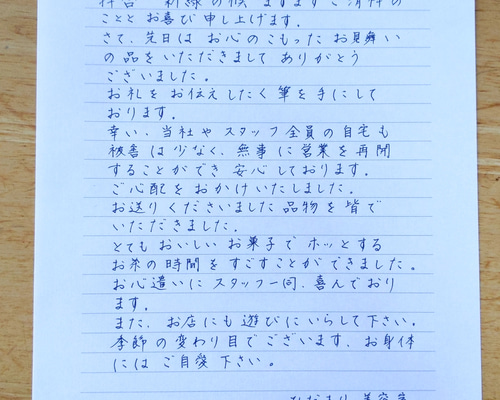 拝啓 新緑の候 ますますご清祥の
ことと お喜び 申し上げます。
さて、先日は お心の こもった お見舞い
の 品を いただきまして ありがとう
ございました。
お礼を お伝えしたく 筆を 手にして
おります。
幸い、当社や スタッフ 全員の 自宅も
被害は 少なく、無事に 営業を 再開
することができ 安心しております。
ご心配を おかけいたしました。
お送りくださいました 品物を 皆で
いただきました。
とても おいしい お菓子で ホッとする
お茶の 時間を すごすことができました。
お心遣いに スタッフ一同、喜んでおり
ます。
また、お店にも 遊びに いらして 下さい。
季節の 変わり目でございます、お身体
には ご自愛 下さい。
ひだまり 美容室